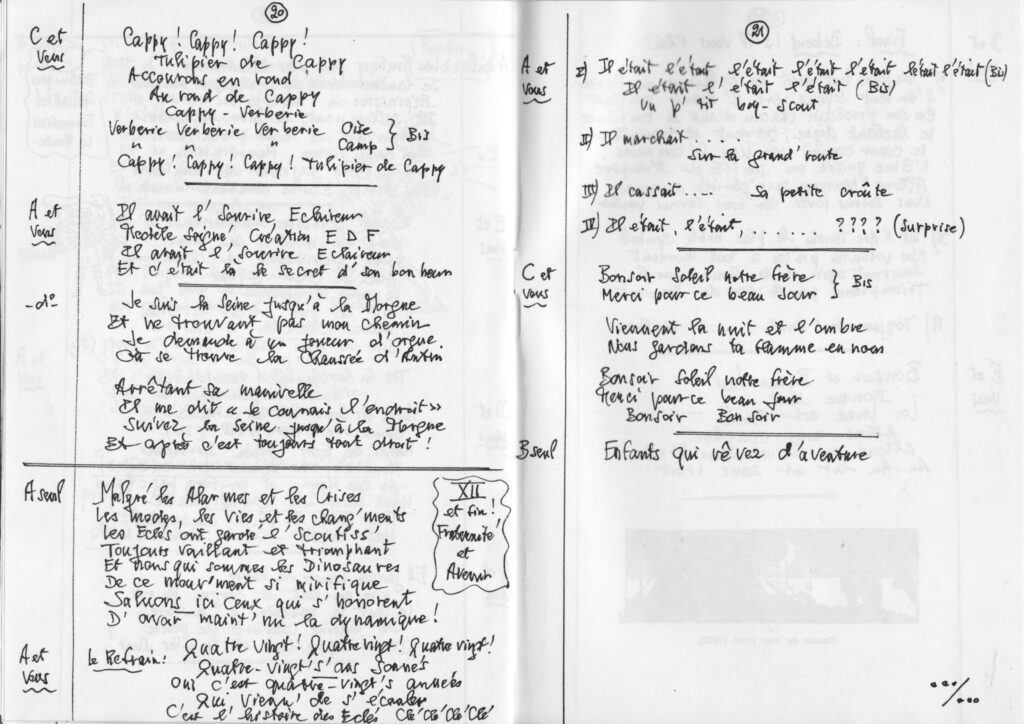 20
C et Vous
Cappy ! Cappy ! Cappy !
Tulipier de Cappy
Accourons en rond
Au rond de Cappy
Cappy - Verberie
Verberie Verberie Verberie Oise } Bis
" " " Camp
Cappy ! Cappy ! Cappy ! Tulipier de Cappy
A et Vous
Il avait l' Sourire Eclaireur
Modèle Soigné, Création E D F
Il avait l' Sourire Eclaireur
Et c'était là le secret d' son bonheur
- d°
Je suis la Seine jusqu'à la Morgue
Et ne trouvant pas mon chemin
Je demande à un joueur d'orgue,
Où se trouve la Chaussée d'Antin
Arrêtant sa manivelle
Il me dit « Je connais l'endroit »
Suivez la Seine jusqu'à la Morgue
Et après c'est toujours tout droit !
A seul
Malgré les Alarmes et les Crises
Les modes, les Vies et les chang'ments
Les Eclés ont gardé l' Scoutiss'
Toujours vaillant et triomphant
Et nous qui sommes les Dinosaures
De ce mouv'ment si mirifique
Saluons ici ceux qui s'honorent
D' avoir maint'nu la dynamique !
XII
et fin !
Fraternité
et
Avenir
A et Vous
Le Refrain :
Quatre vingt ! Quatre vingt ! Quatre vingt !
Quatre-vingt's' ans sonnés
Oui c'est quatre-vingt's années
Qui vienn' de s'écouler
C'est l' histoire des Eclés Clé'Clé'Clé'Clé
21
A et Vous
I) Il était l'était, l'était l'était l'était l'était l'était (Bis)
Il était l' était l'était (Bis)
Un p' tit boy-scout
II) Il marchait . . . .
Sur la grand' route
III) Il cassait . . . . sa petite croûte
IV) Il était, l'était, . . . . . . . . ???? (Surprise)
C et Vous
Bonsoir Soleil notre frère } Bis
Merci pour ce beau jour
Viennent la nuit et l'ombre
Nous gardons ta flamme en nous
Bonsoir Soleil notre frère
Merci pour ce beau jour
Bonsoir Bonsoir
B seul
Enfants qui rêvez d'aventure
.../...